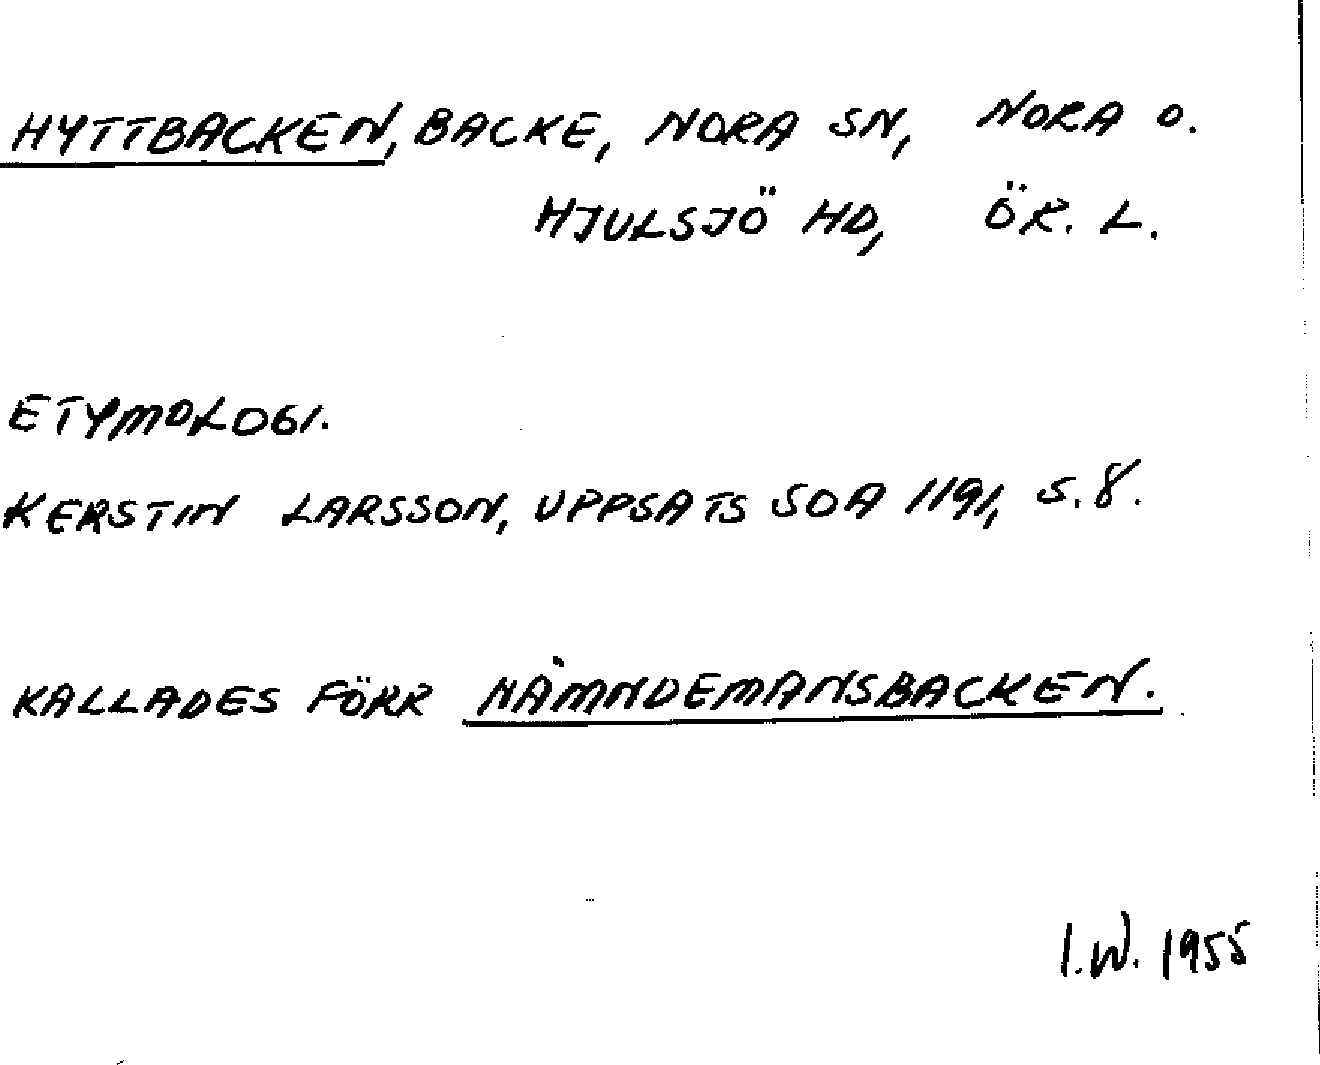 HYTTBACKEN, BACKE, NORA SN, NORA O.
HJULSJÖ HD, ÖR. L.
ETYMOLOGI.
KERSTIN LARSSON, UPPSATS SOA 1191, S. 8.
KALLADES FÖRR NÄMNDEMANSBACKEN.
I.W. 1955